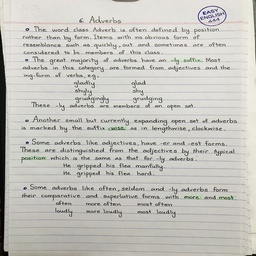 6. Adverbs
EASY ENGLISH 444
The word class Adverb is often defined by position
rather than by form. Items with no obvious form of
resemblance such as quickly, out and sometimes are often
considered to be members of this class.
The great majority of adverbs have an -ly suffix. Most
adverbs in this category are formed from adjectives and the
ing-form of verbs, eg.
gladly glad
shyly shy
grudgingly grudging
These -ly adverbs are members of an open set.
Another small but currently expanding open set of adverbs
is marked by the suffix -wise as in lengthwise, clockwise.
Some adverbs like adjectives, have -er and -est forms.
These are distinguished from the adjectives by their typical
position which is the same as that for -ly adverbs.
He gripped his flex manfully.
He gripped his flex hard.
Some adverbs like often, seldom and -ly adverbs form
their comparative and superlative forms with more and most.
often more often most often
loudly more loudly most loudly